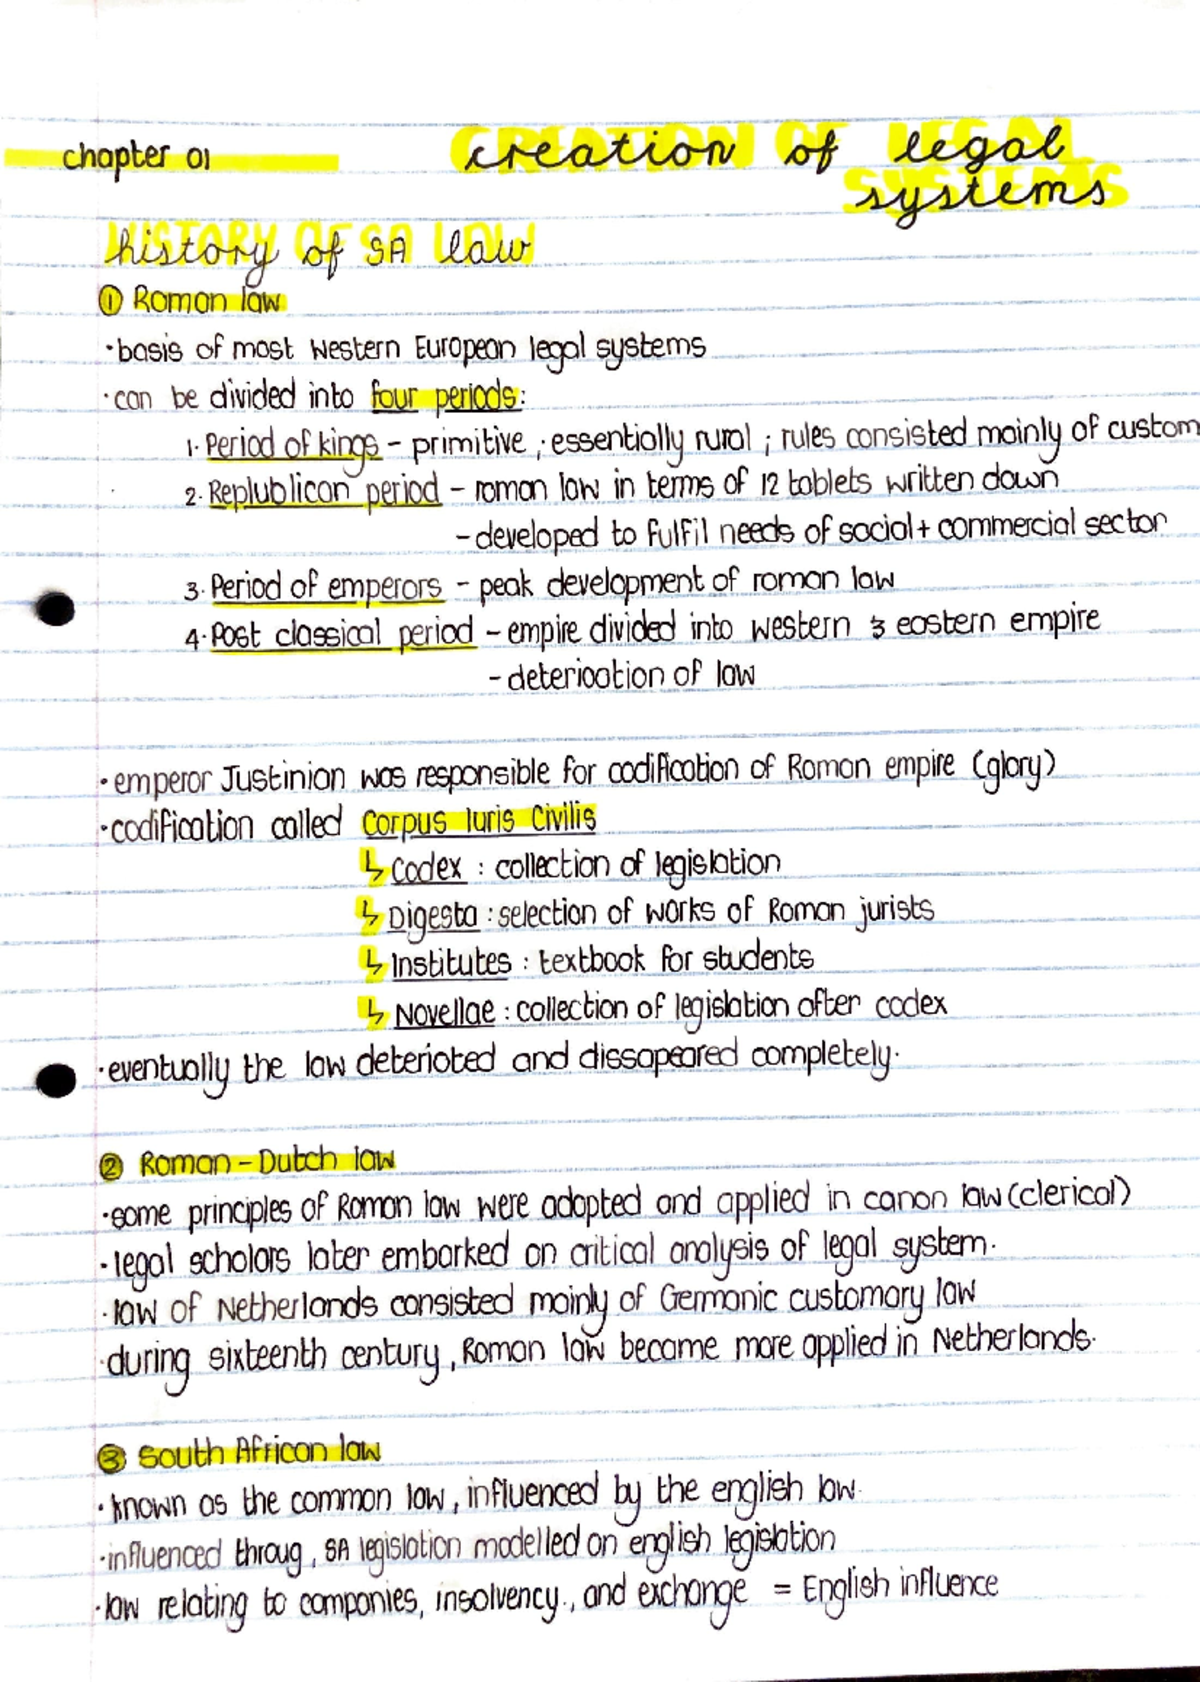 chapter 01
creation of legal
systems
history of SA law
① Roman law
·basis of most Western European legal systems
·can be divided into four periods:
1. Period of kings - primitive ; essentially rural ; rules consisted mainly of custom
2. Replublican period - roman law in terms of 12 tablets written down
- developed to fulfil needs of social + commercial sector
3. Period of emperors - peak development of roman law
4. Post classical period - empire divided into western & eastern empire
- deterioation of law
· emperor Justinian was responsible for codification of Roman empire (glory)
·codification called Corpus Iuris Civilis
↳ Codex : collection of legislation
↳ Digesta : selection of works of Roman jurists
↳ Institutes : textbook for students
↳ Novellae : collection of legislation after codex
·eventually the law deterioted and dissapeared completely.
② Roman - Dutch law
·some principles of Roman law were adapted and applied in canon law (clerical)
· legal scholars later embarked on critical analysis of legal system.
· law of Netherlands consisted mainly of Germanic customary law
·during sixteenth century, Roman law became more applied in Netherlands.
③ South African law
· known as the common law, influenced by the english law.
·influenced throug, SA legislation modelled on english legislation
·law relating to companies, insolvency., and exchange = English influence